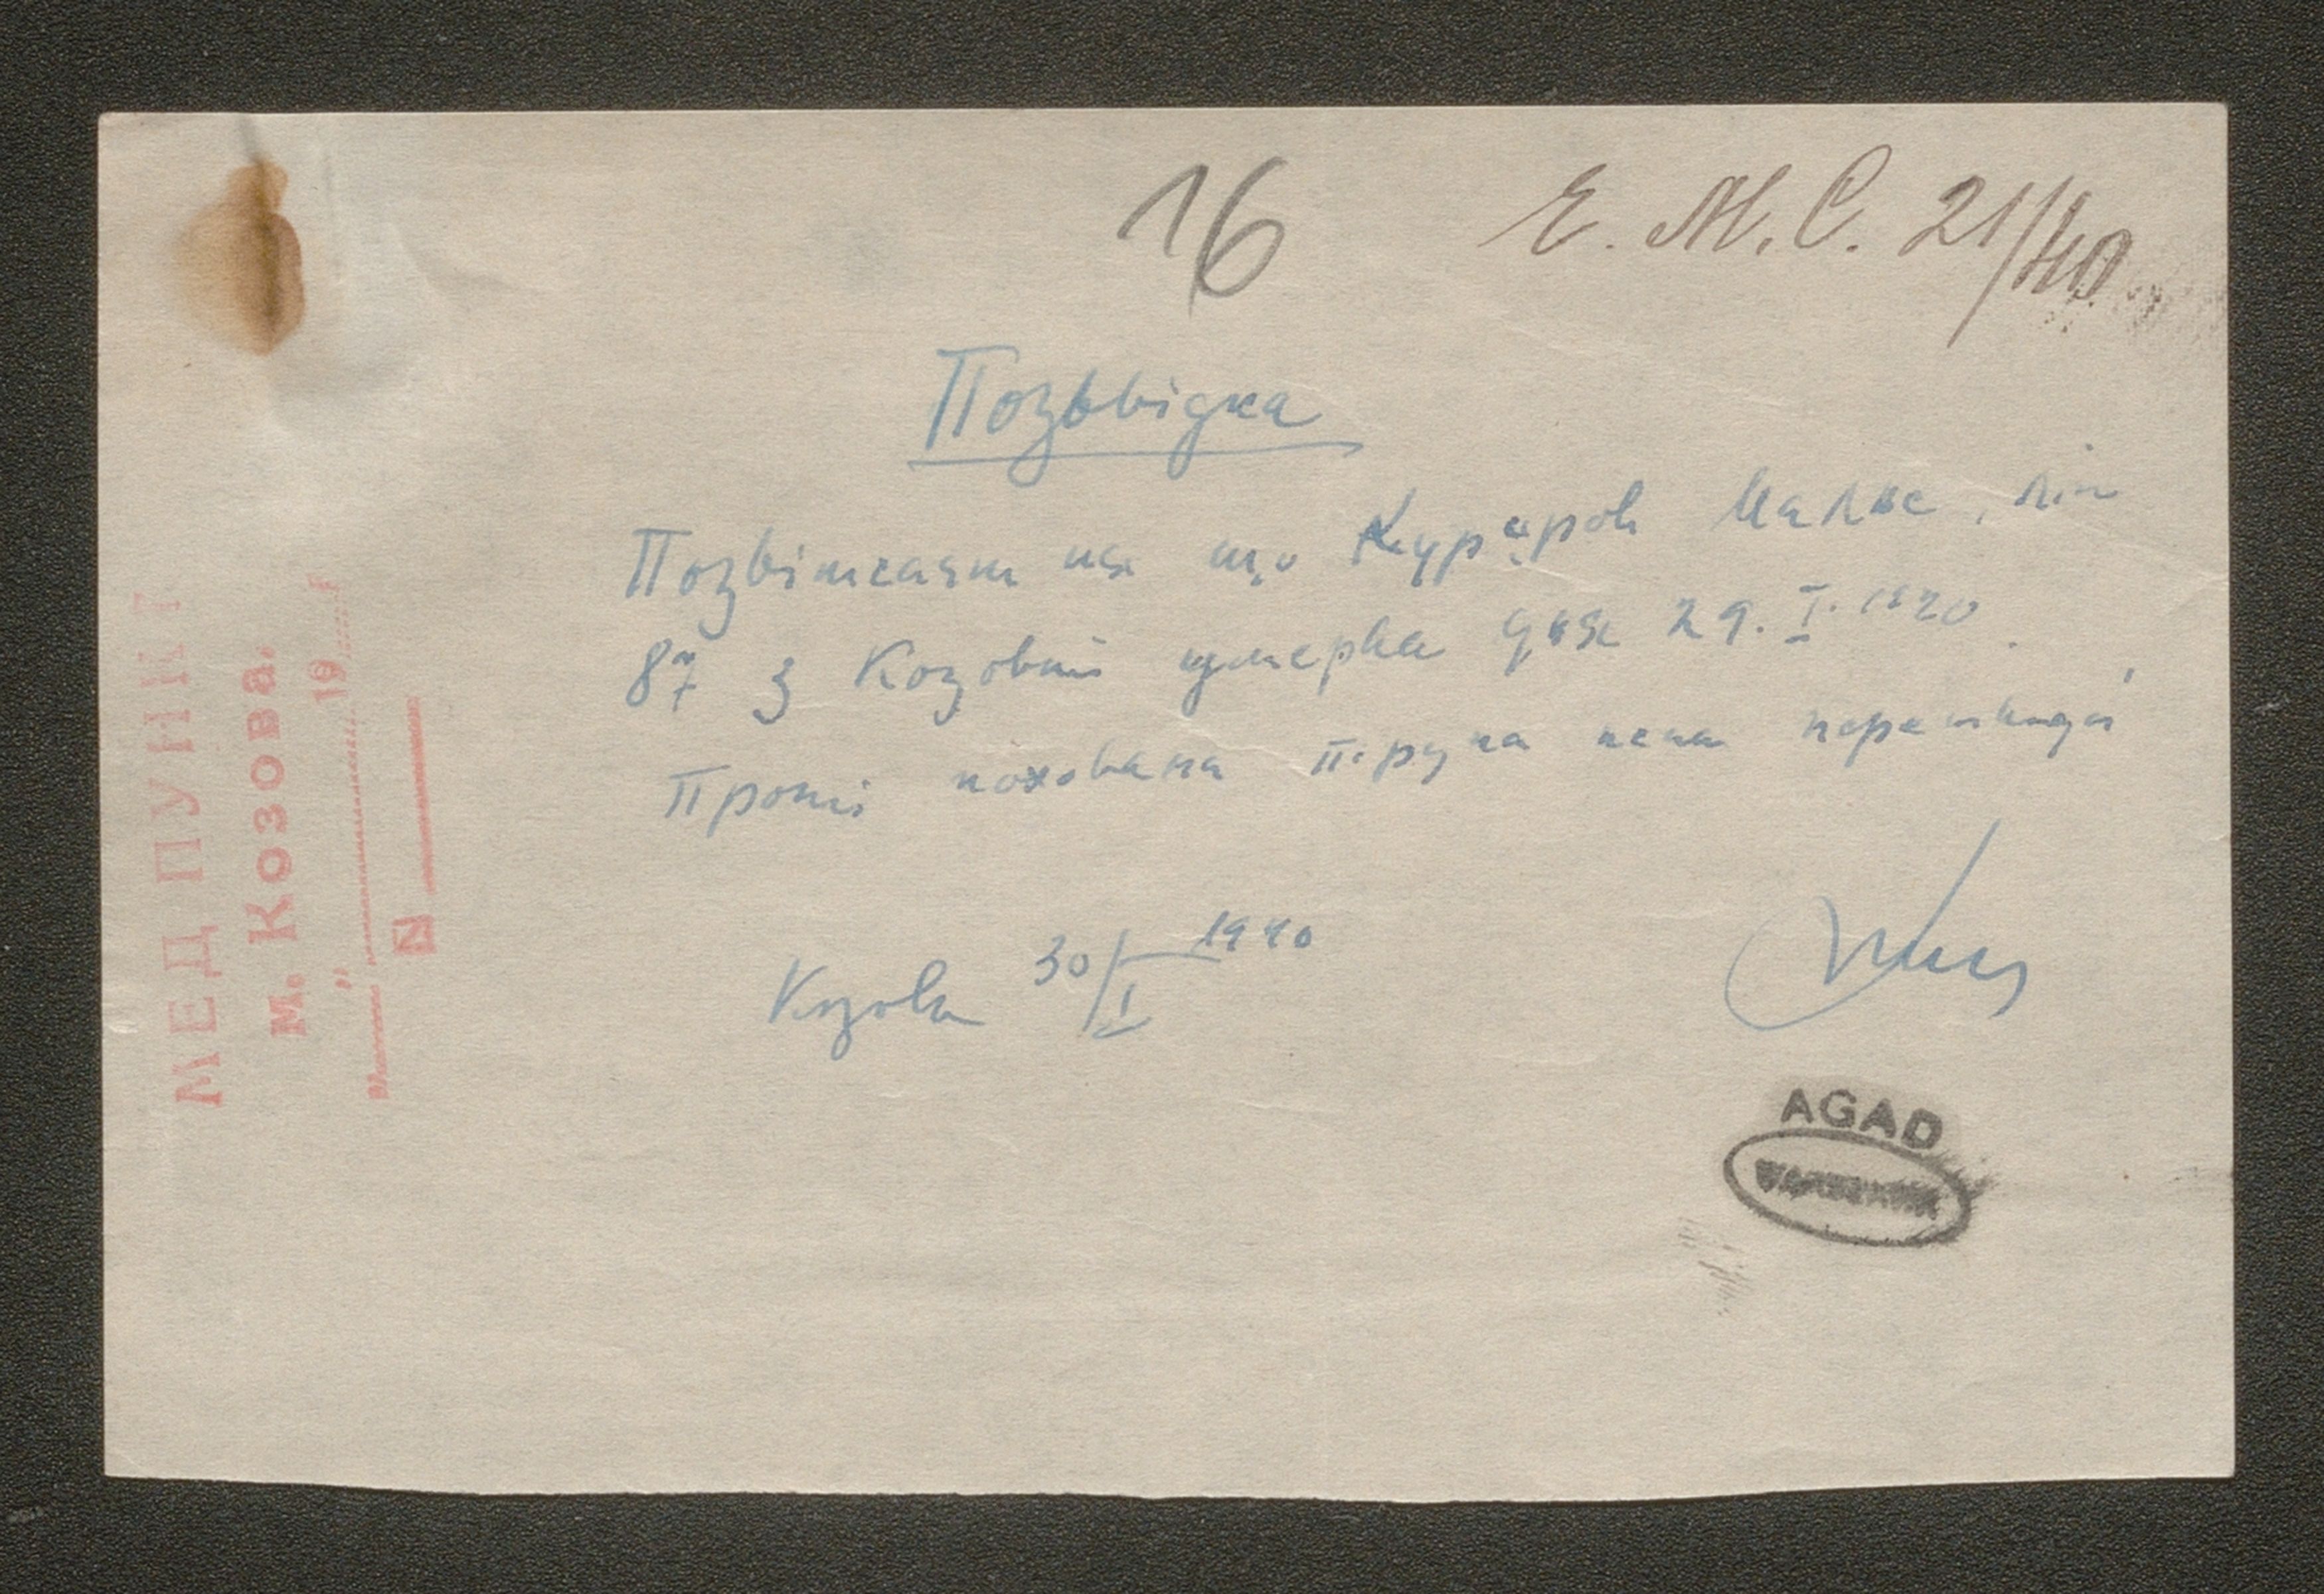 16
Е. М. С. 21/40
Позьвідка
що Курцров Малке, літ
87 з Козови умерла дня 29. I. 1940.
Проти похована трупа нема перешкоди
Козова 30/I 1940
МЕДПУНКТ
м. Козова.
" 19
N
AGAD
WARSZAWA